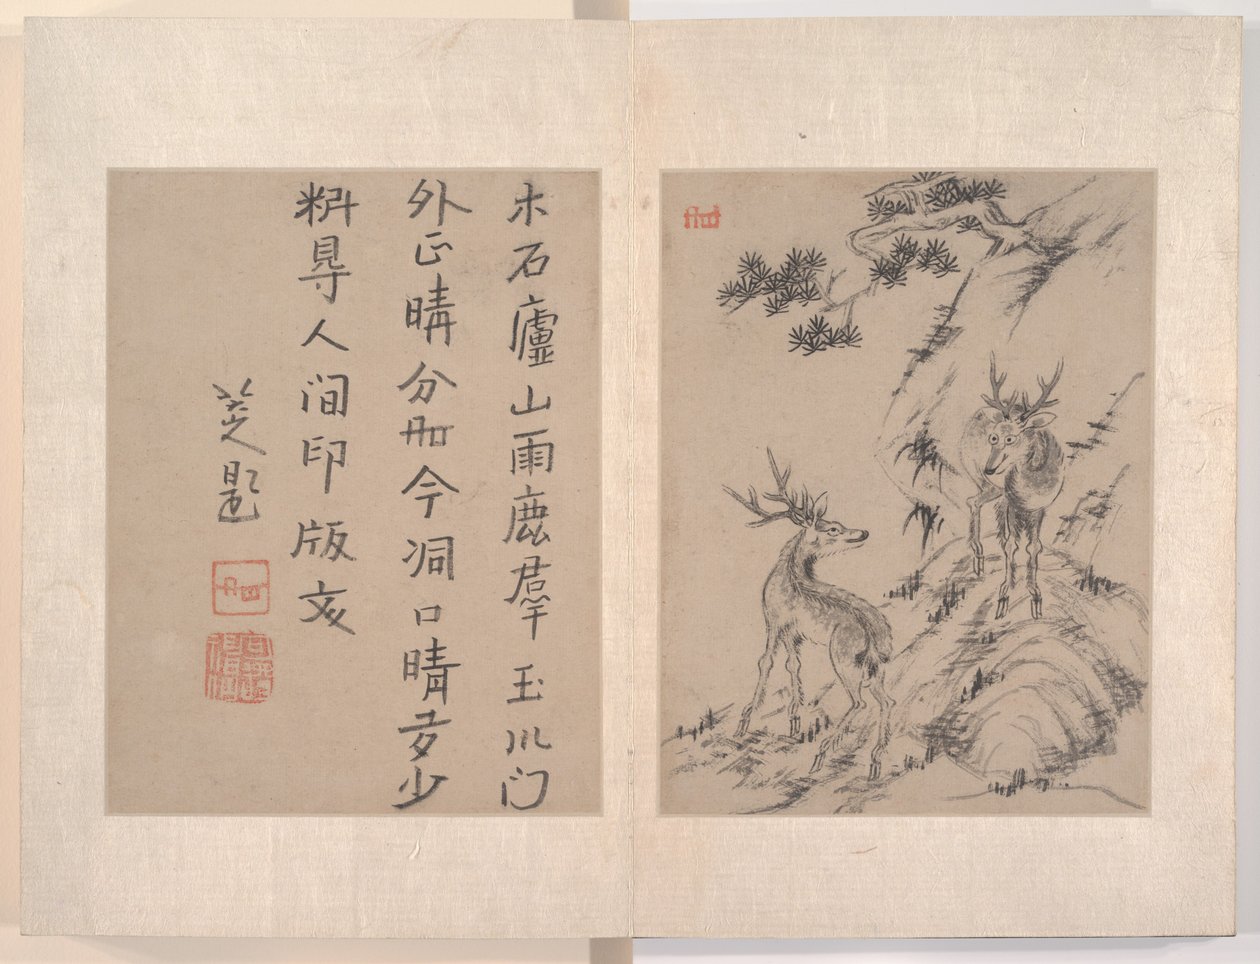 木石廬山雨鹿羣玉川门
外正晴分今洞口晴多少
料䙷人间印版文